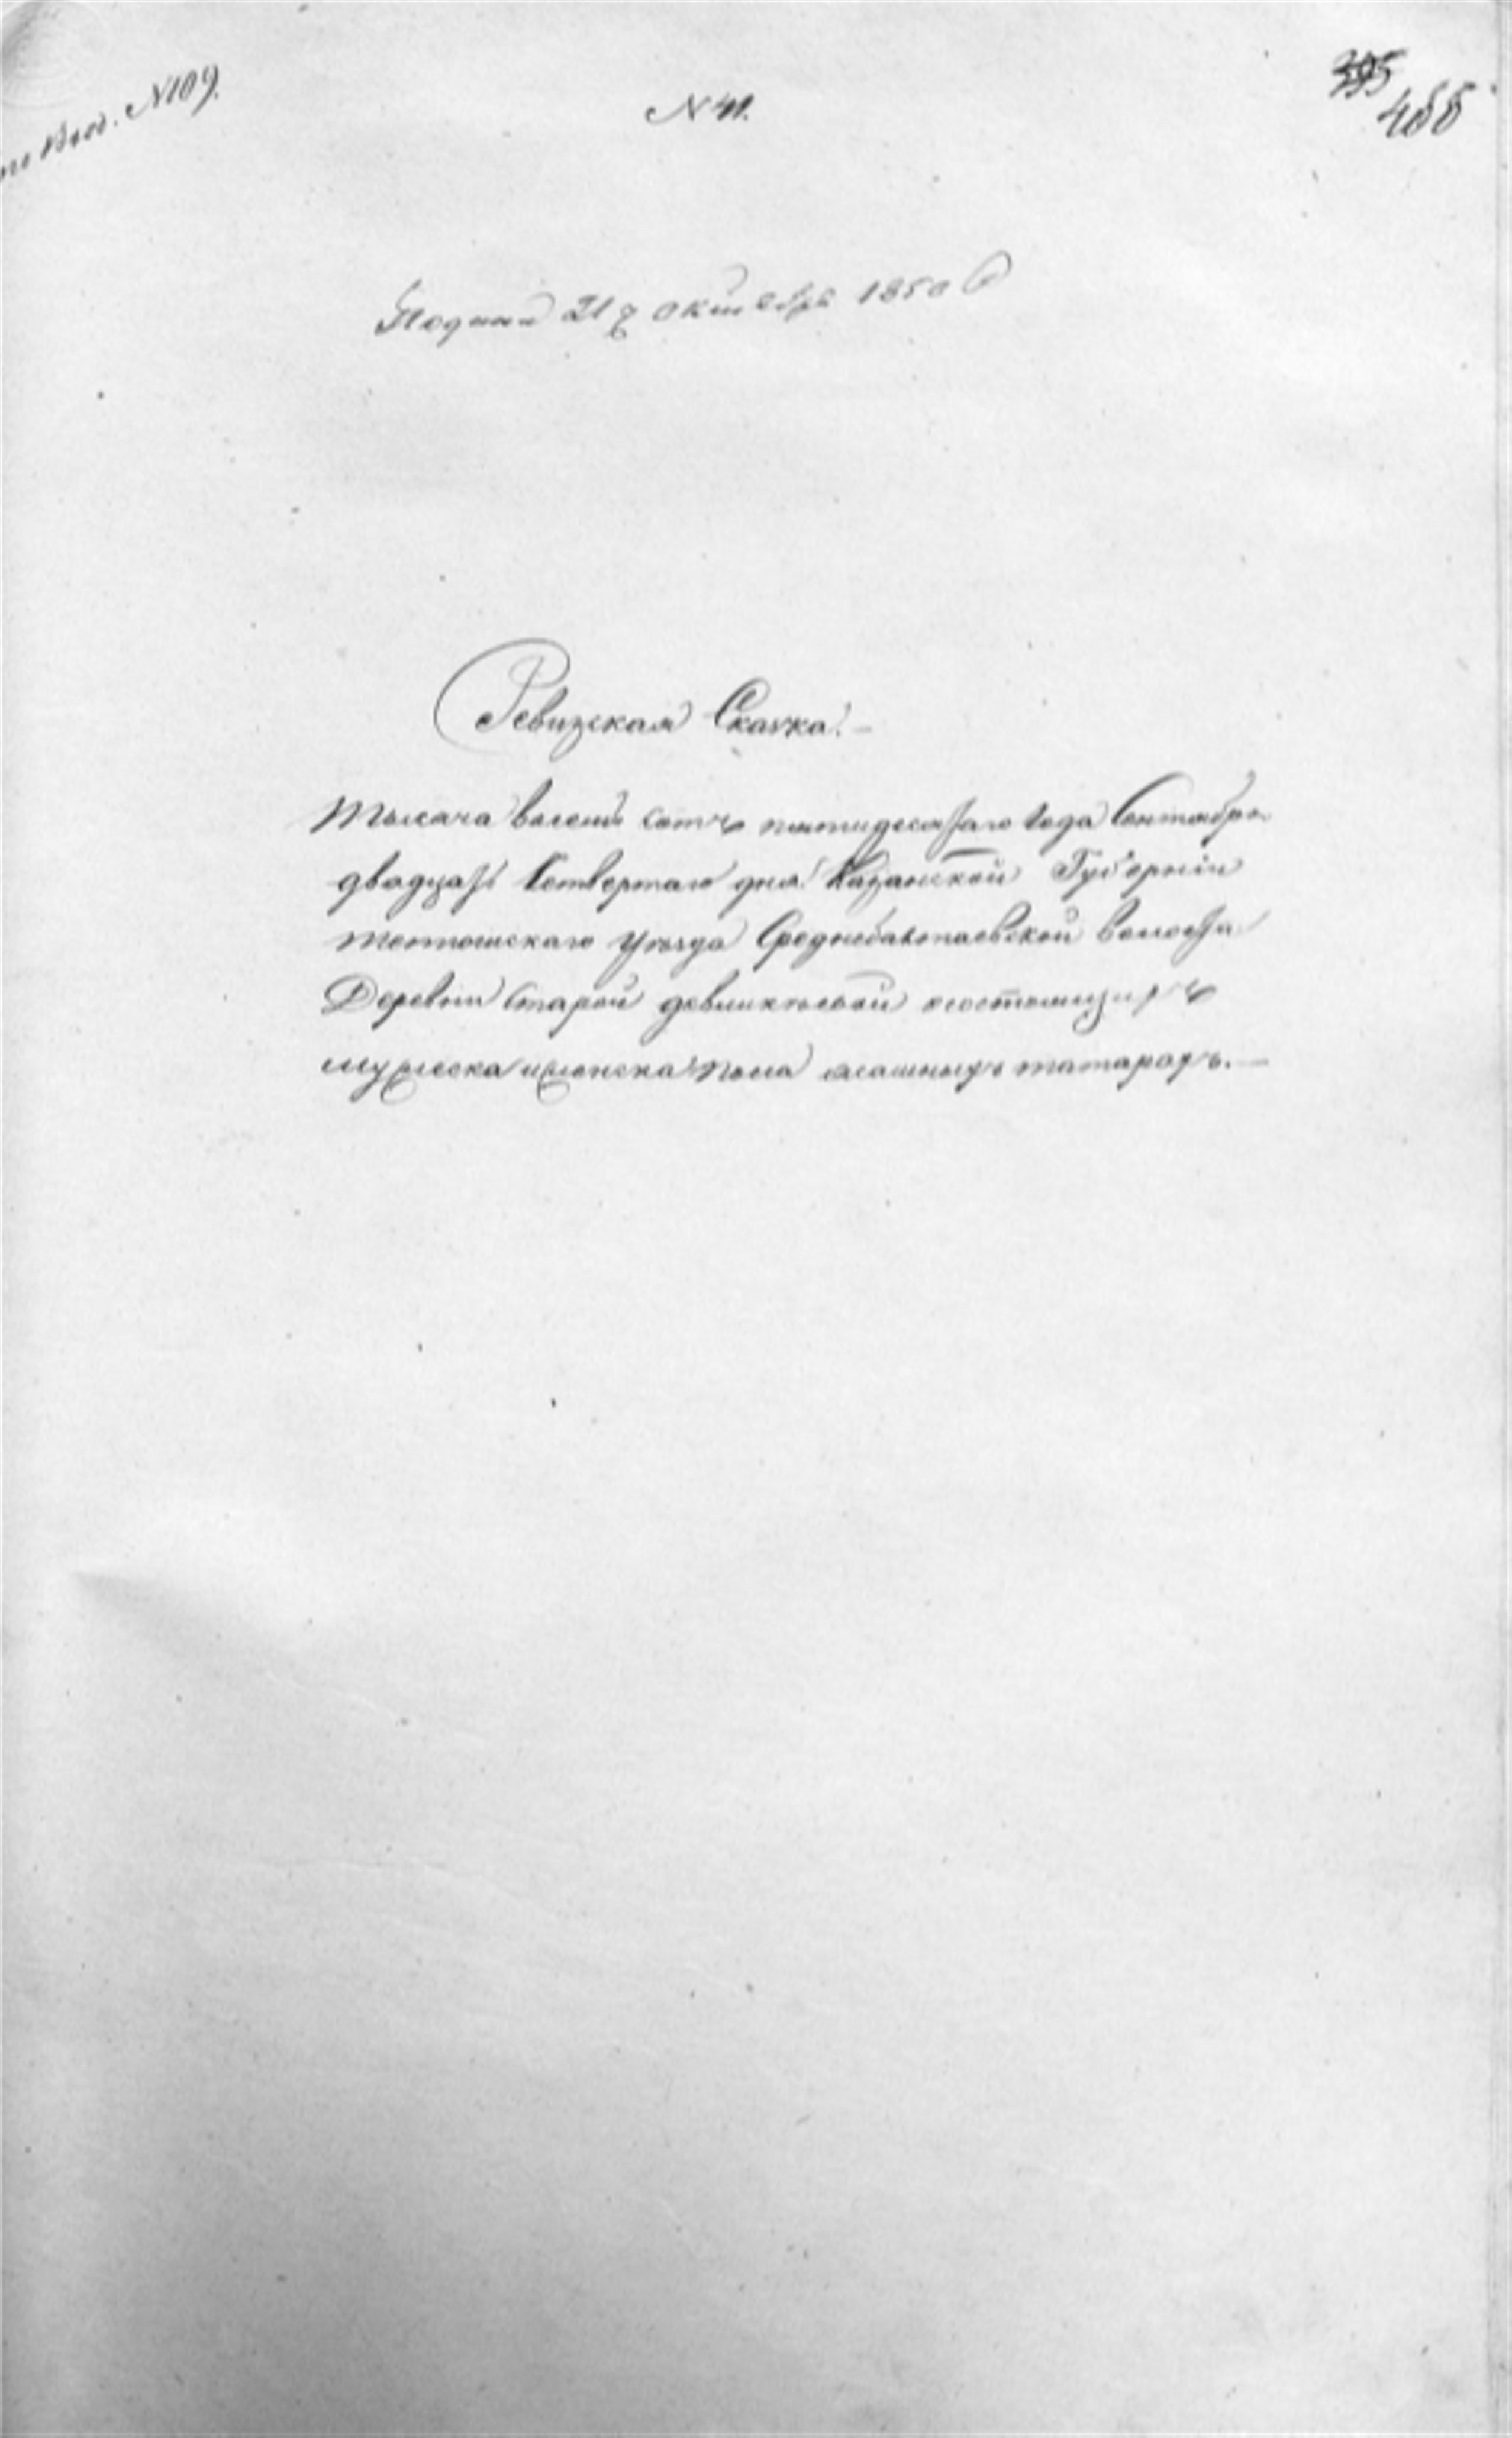 N109.
N 41.
395
466
Подана 21 октября 1850
Ревизская Скаска.
Тысяча восемь сотъ пятидесятаго года Сентября
двадцать Четвертаго дня Казанской Губернiи
тетюшскаго уѣзда Среднебалтаевской волости
Деревни Старой о состоящихъ
мужеска и женска пола ясашныхъ татарахъ.